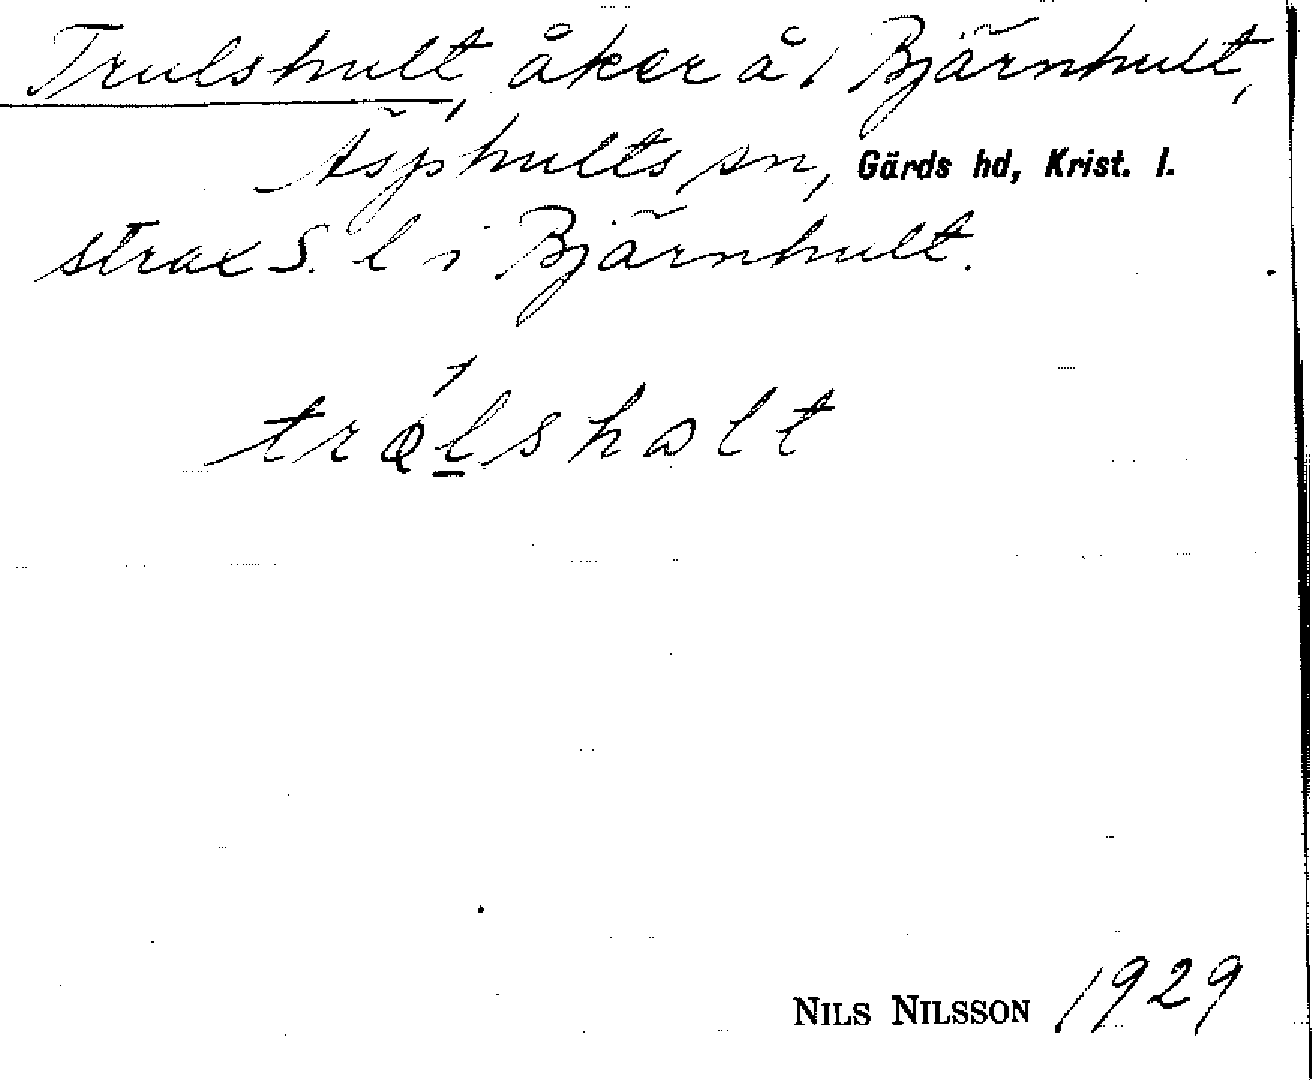 Trulshult, åker å 1 Bjärnhult,
Äsphults sn, Gärds hd, Krist. l.
strax S. l i Bjärnhult.
NILS NILSSON 1929